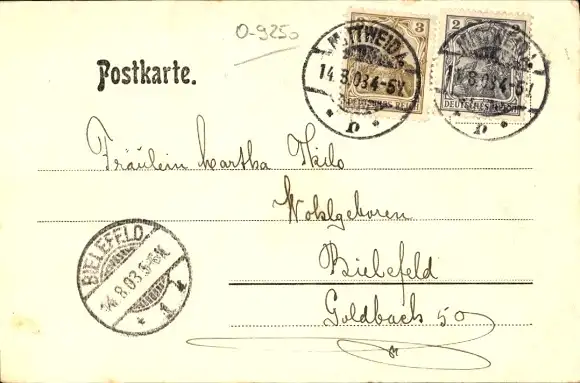 O-9250
3 2
MITTWEIDA MITTWEIDA
14.8.03.4-5N. 14.8.03.4-5N.
DEUTSCHES REICH DEUTSCHES REICH
* b * * b *
Postkarte.
Fräulein Martha Thilo
Wohlgeboren
Bielefeld
Goldbach 50
BIELEFELD
14.8.03.5-6N.
* 1 *